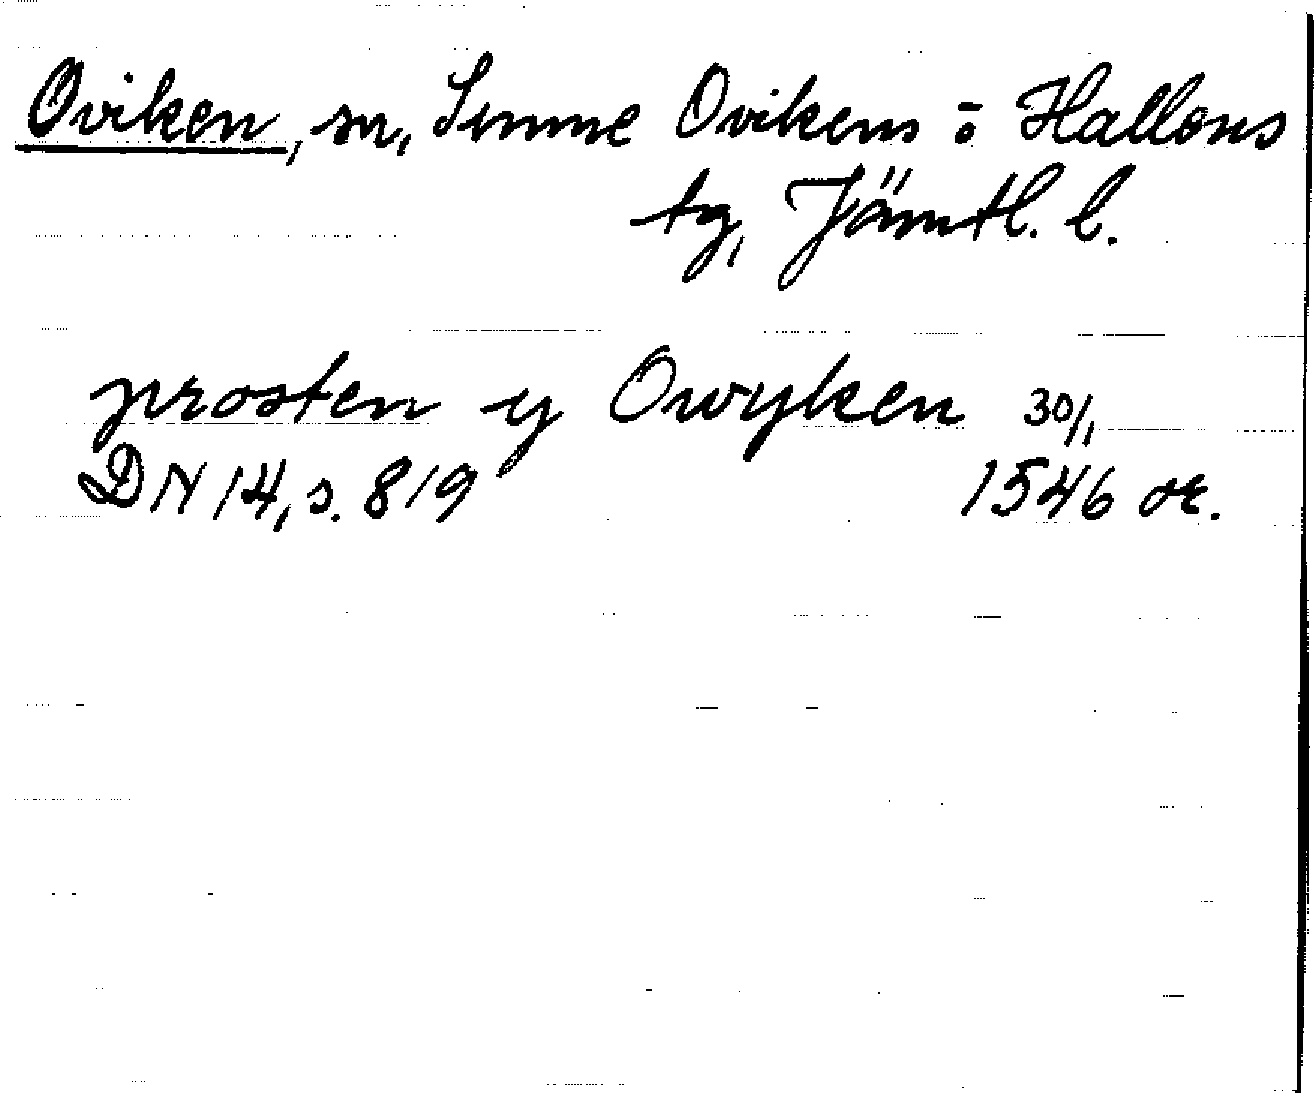 Oviken, sn, Sunne Ovikens o Hallens
tg, Jämtl. l.
prosten y Owyken 30/1
DN 14, s. 819 1546 or.